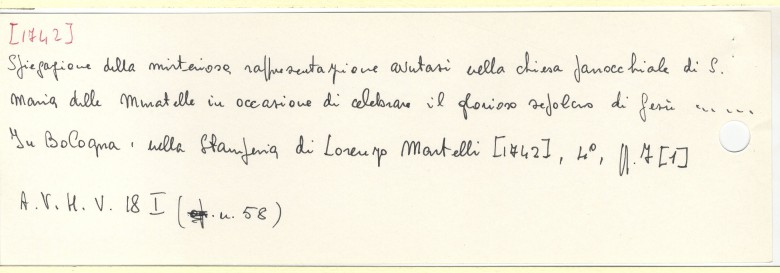 [1742]
Spiegazione della misteriosa rappresentazione avutasi nella chiesa parrocchiale di S.
Maria delle Muratelle in occasione di celebrare il glorioso sepolcro di Gesù ......
In Bologna, nella Stamperia di Lorenzo Martelli [1742], 4°, pp. 7 [1]
A. V. H. V. 18 I ( n. 58)